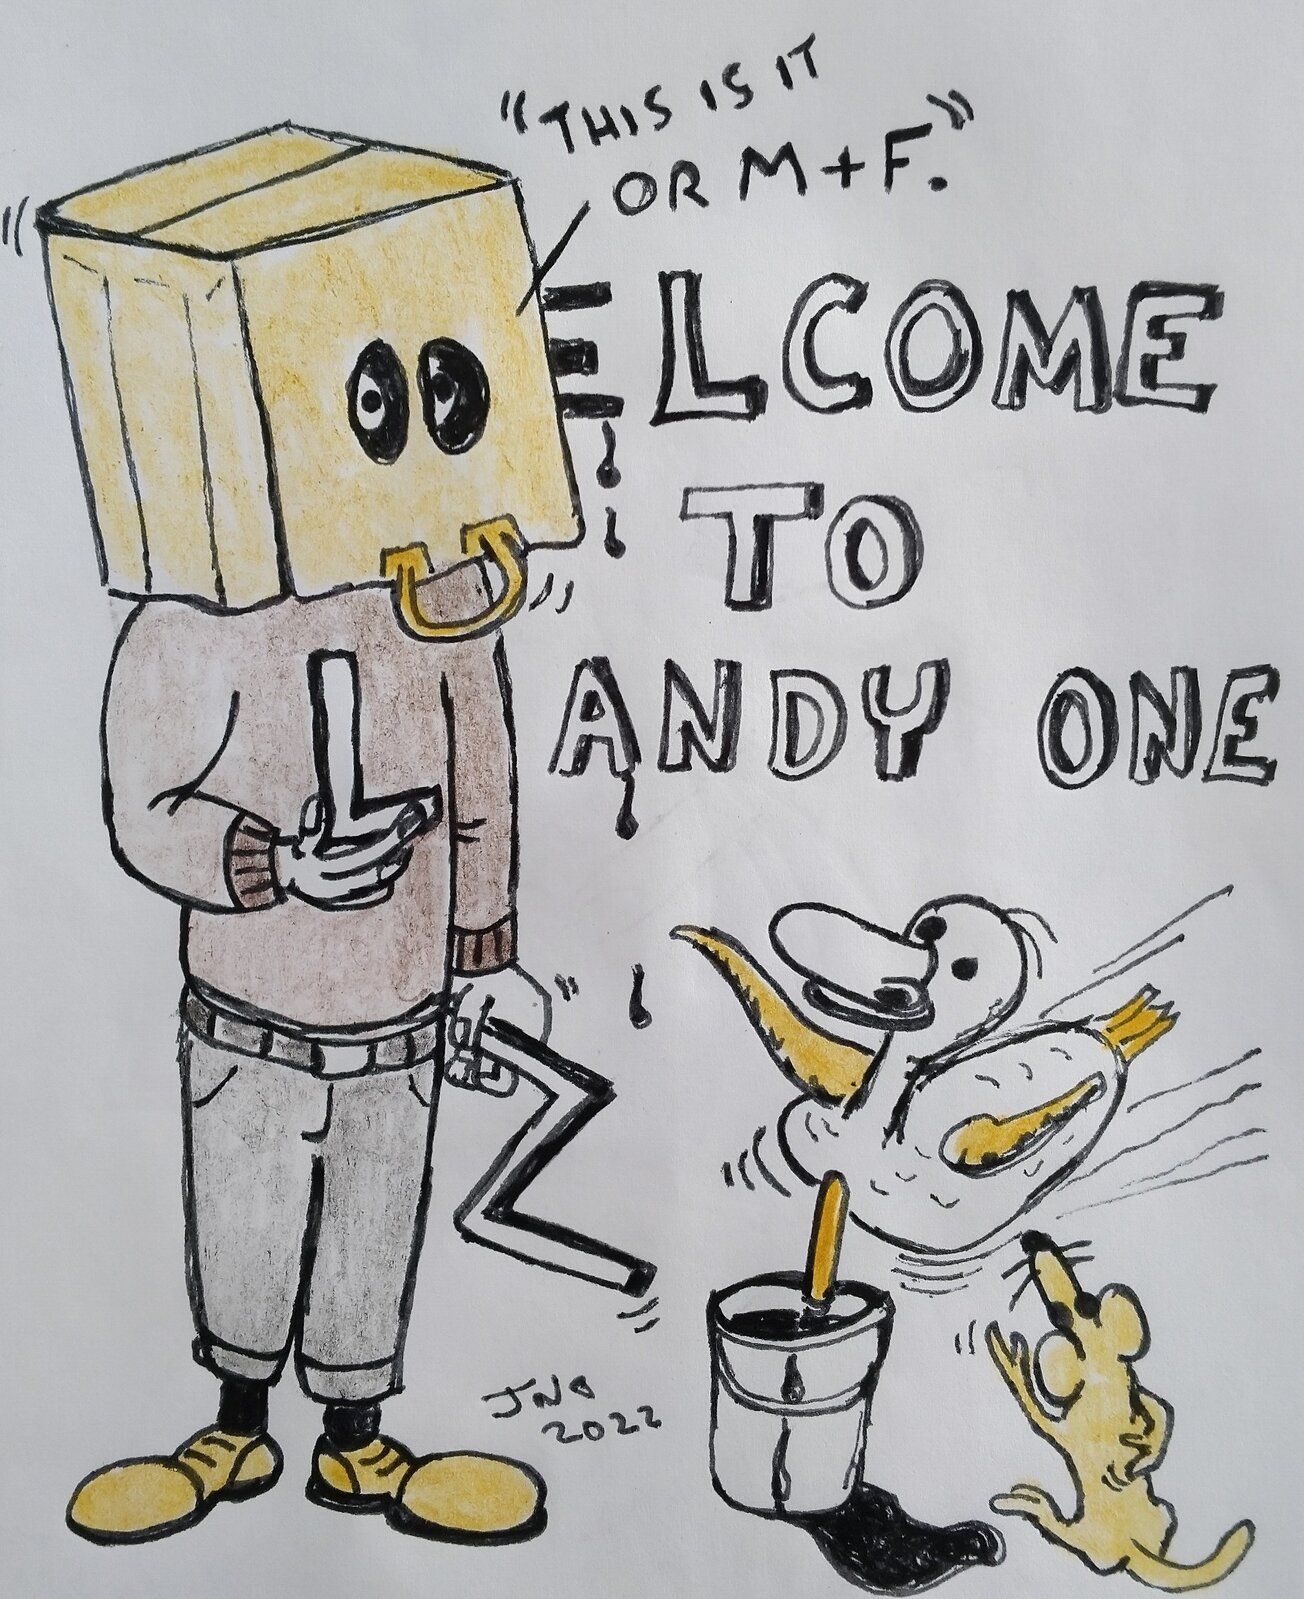 "THIS IS IT
OR M + F."
ELCOME
TO
ANDY ONE
L
2022